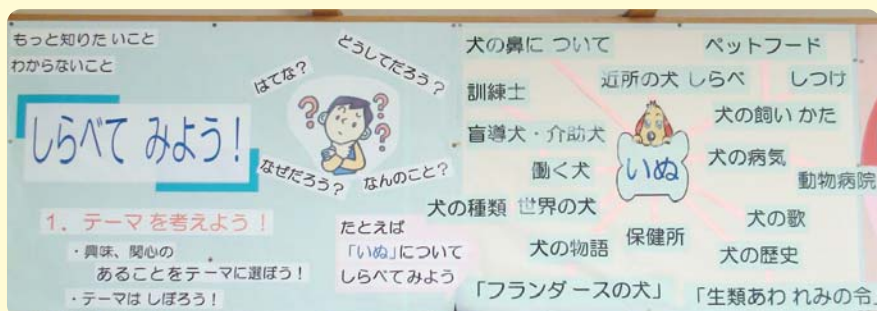 もっと知りたいこと
わからないこと
はてな？
どうしてだろう？
なぜだろう？
なんのこと？
しらべて みよう！
1．テーマを考えよう！
・興味、関心の
あることをテーマに選ぼう！
・テーマは しぼろう！
たとえば
「いぬ」について
しらべてみよう
犬の鼻に ついて
ペットフード
近所の犬 しらべ
しつけ
訓練士
犬の飼い かた
盲導犬・介助犬
働く犬
いぬ
犬の病気
動物病院
犬の種類 世界の犬
犬の歌
犬の物語
保健所
犬の歴史
「フランダースの犬」
「生類あわ れみの令」